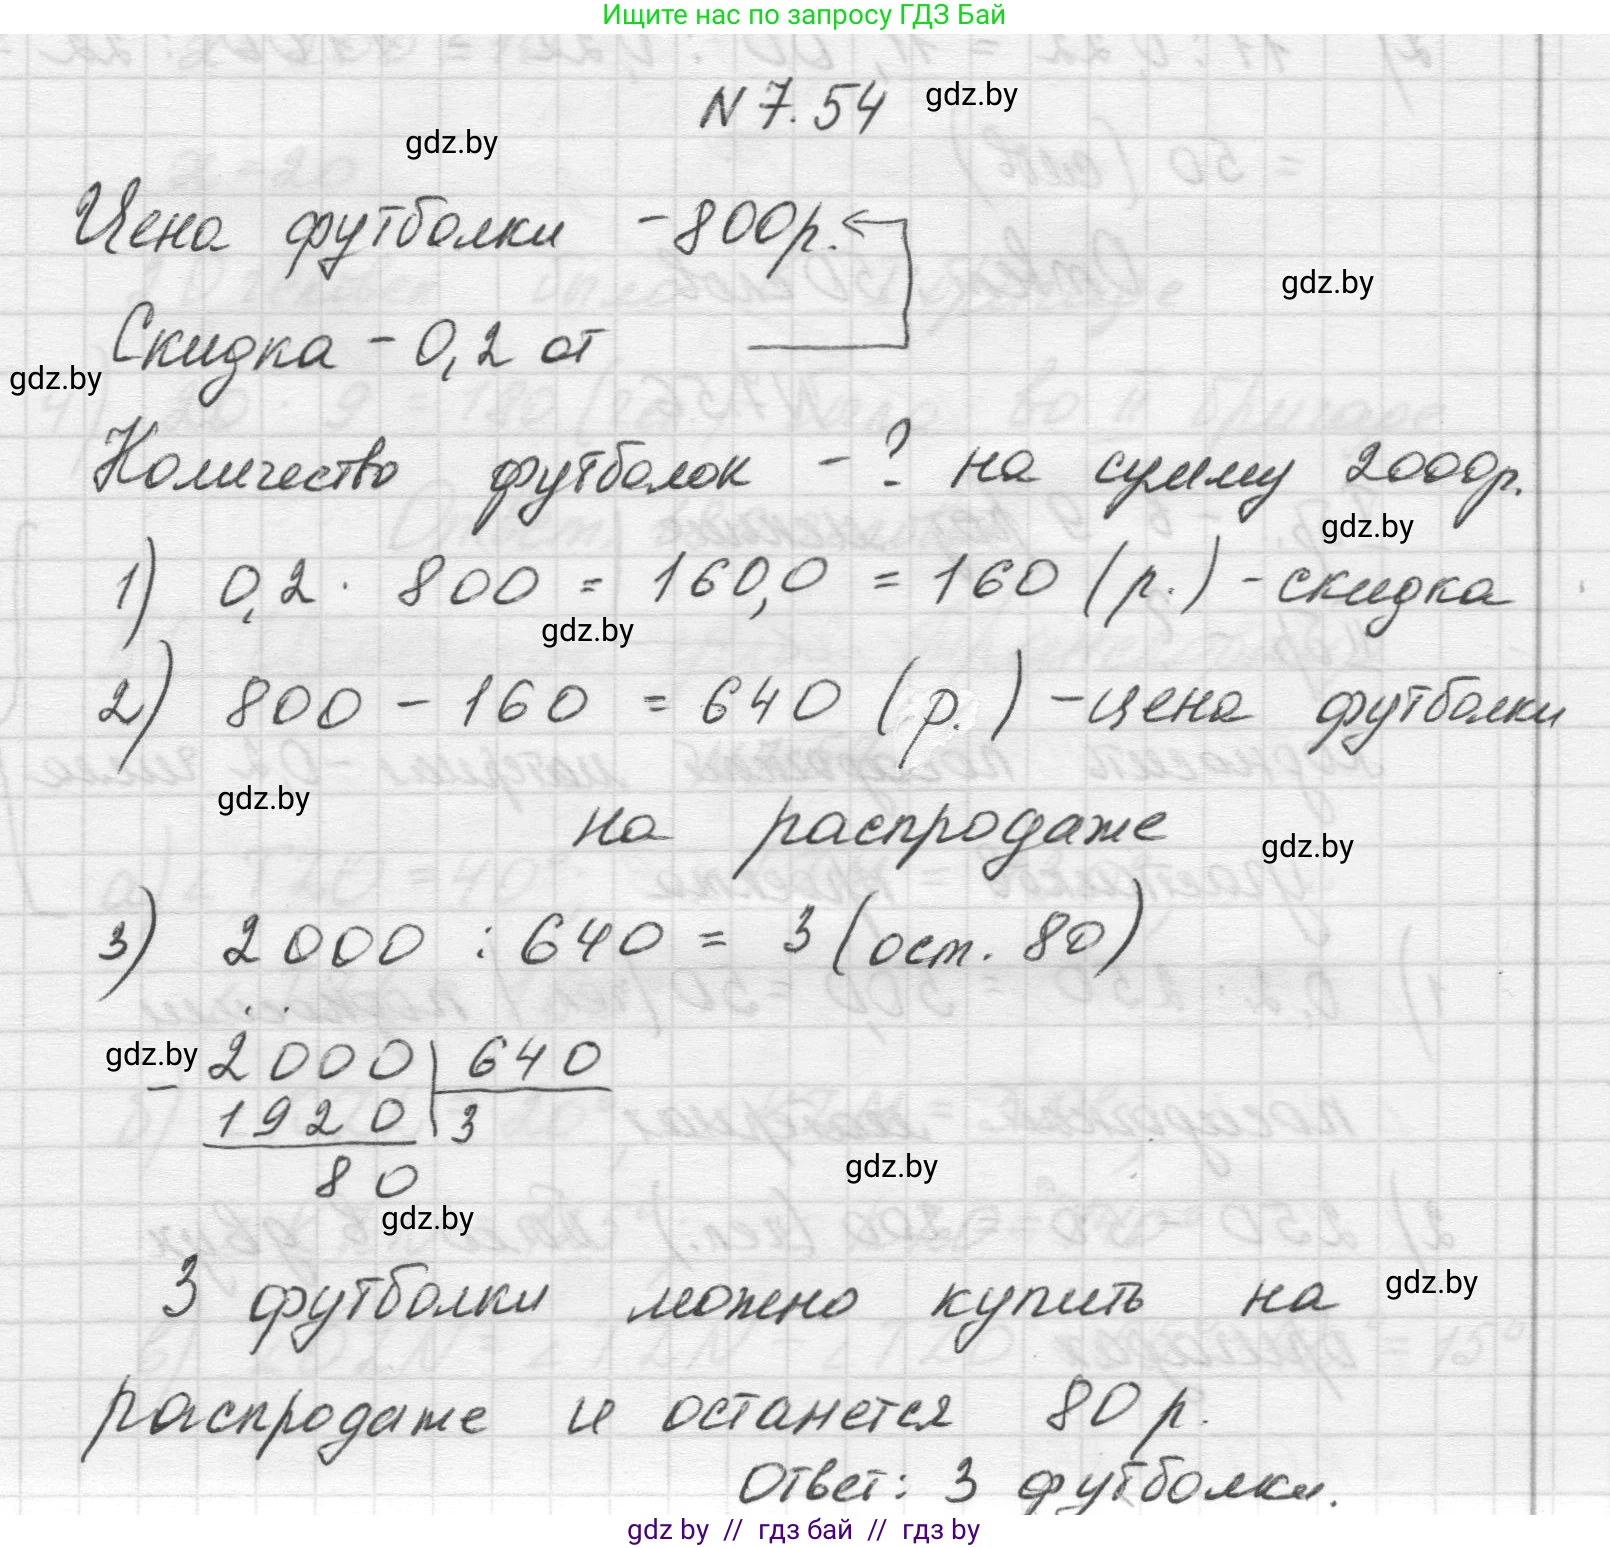 Ищите нас по запросу ГДЗ Бай
N 7.54 gdz.by
gdz.by
Цена футболки - 800р.
gdz.by
Скидка - 0,2 от
gdz.by
Количество футболок - ? на сумму 2000р.
gdz.by
1) 0,2 · 800 = 160,0 = 160 (р.) - скидка
gdz.by
2) 800 - 160 = 640 (р.) - цена футболки
gdz.by
на распродаже
gdz.by
3) 2000 : 640 = 3 (ост. 80)
gdz.by
- 2000 | 640
1920 | 3
80
gdz.by
gdz.by
3 футболки можно купить на
gdz.by
распродаже и останется 80 р.
Ответ: 3 футболки.
gdz by // гдз бай // гдз by